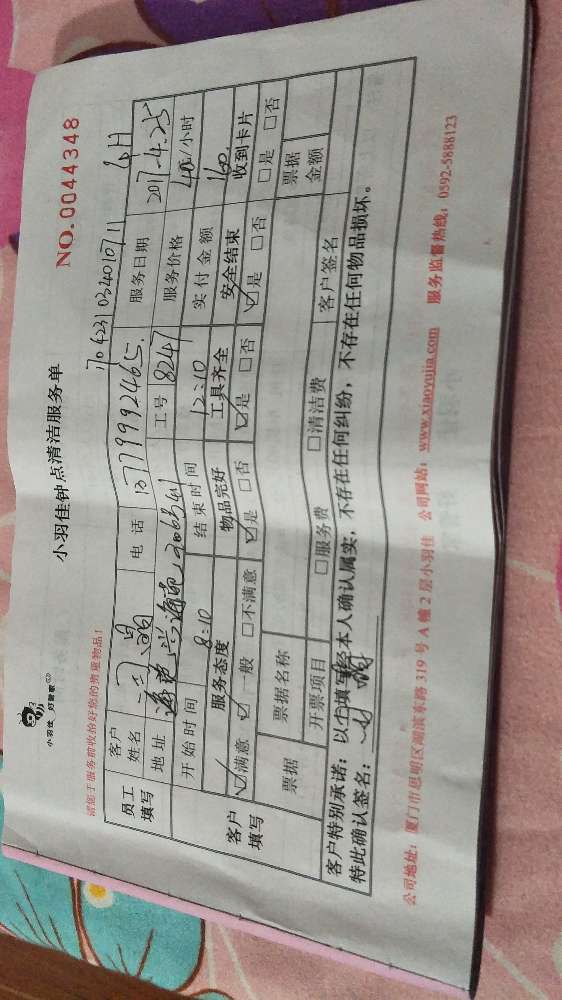 小羽佳 好管家
小羽佳钟点清洁服务单
NO.0044348
请您于服务前收拾好您的贵重物品!
170423103401071
员工填写 客户姓名 电话 13779992465 服务日期 2017.4.25
地址 工号 8247 服务价格 40/小时
开始时间 8:10 结束时间 12:10 实付金额 160
客户填写 服务态度 物品完好 工具齐全 安全结束 收到卡片
满意 一般 不满意 是 否 是 否 是 否 是 否
票据 票据名称 客户签名 票据金额
开票项目 服务费 清洁费
客户特别承诺:以上填写经本人确认属实,不存在任何纠纷,不存在任何物品损坏。
特此确认签名:
公司地址:厦门市思明区湖滨东路319号A幢2层小羽佳 公司网站:www.xiaoyujia.com 服务监督热线:0592-5888123